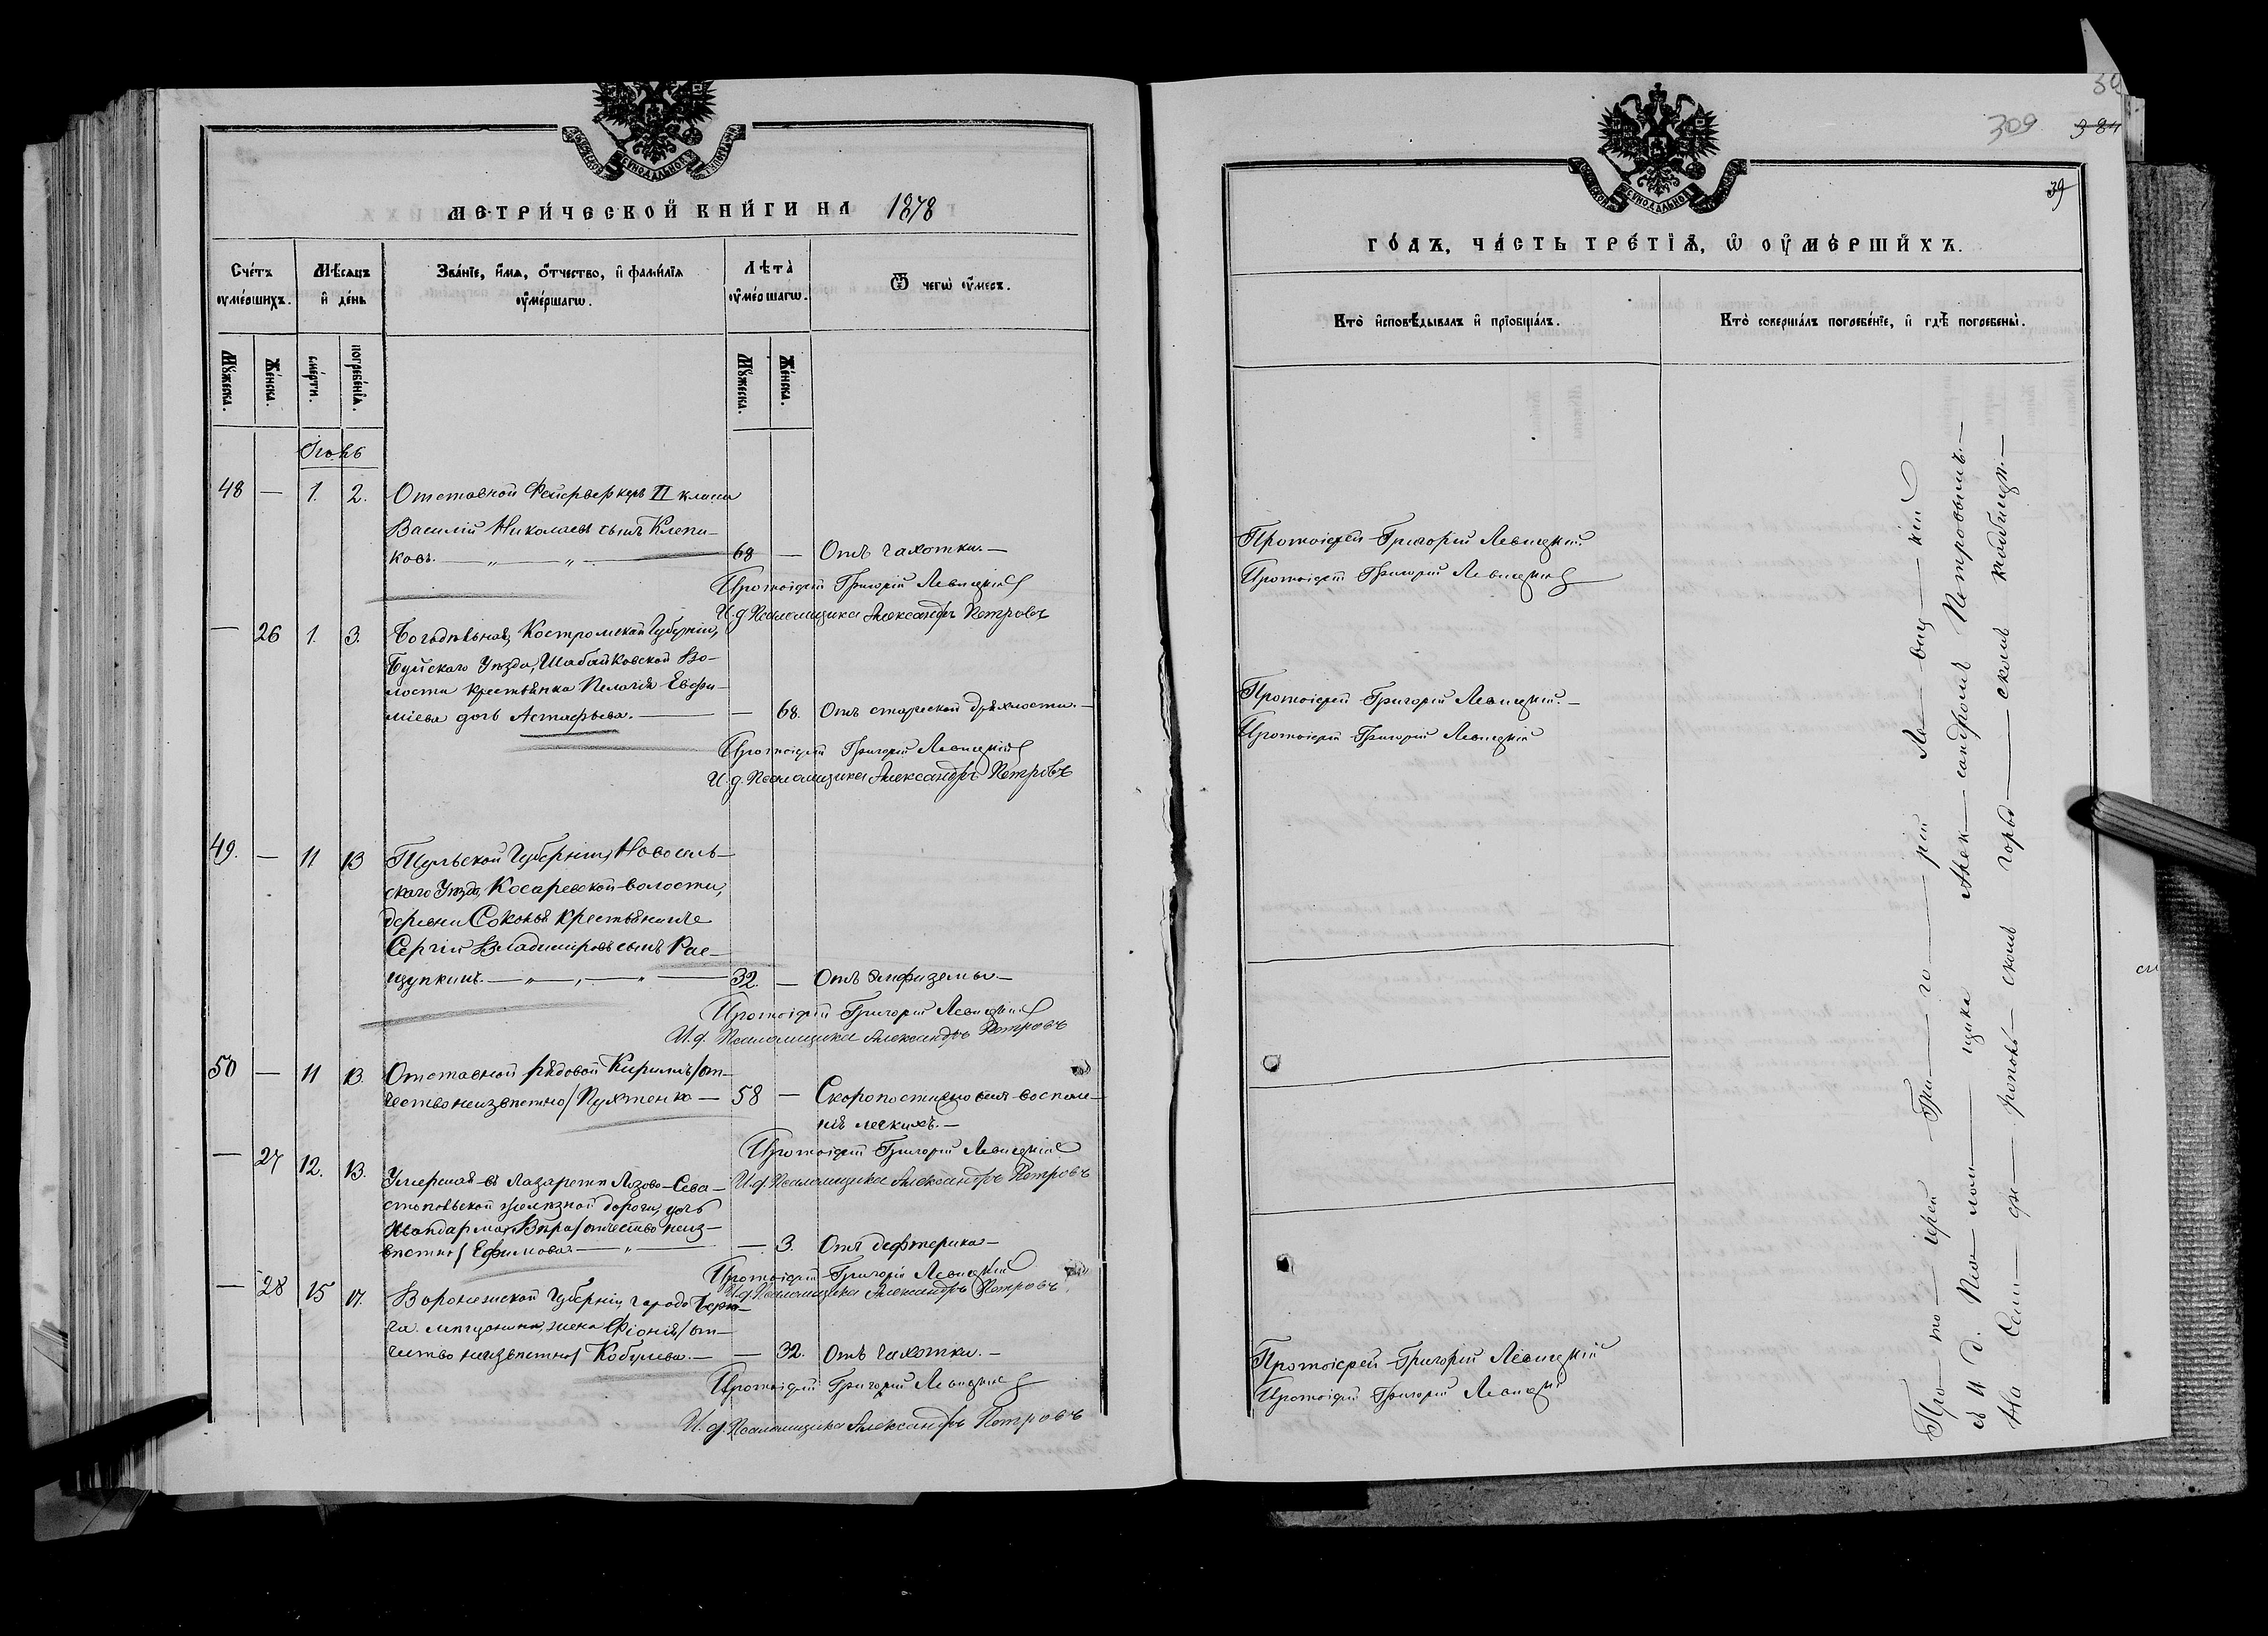 МЕТРИ́ЧЕСКОЙ КНИ́ГИ НА 1878
Счéтъ ᲂумéршихъ.
Мѣ́сяцъ и дéнь
Звáнїе, и́мя, ѻ́тчество, и фами́лїя ᲂумéршагѡ.
Лѣтà ᲂумéршагѡ.
Ѿ чегѡ̀ ᲂу́меръ.
Мꙋ́жеска.
Жéнска.
смéрти.
погребéнїя.
Мꙋ́жеска.
Жéнска.
Іюнь
48 — 1. 2. Отставной Фейерверкеръ II класса
Василій Николаевъ сынъ Клепи-
ковъ. 68 — Отъ чахотки. —
Протоіерей Григорій Левицкій
И. д. Псаломщика Александръ Петровъ
— 26 1. 3. Костромской Губерніи,
Буйскаго Уѣзда, Шабайковской Во-
лости крестьянка Пелагія Евфи-
міева дочь Астафьева. — — 68. Отъ старческой дряхлости. —
Протоіерей Григорій Левицкій
И. д. Псаломщика Александръ Петровъ
49. — 11 13 Тульской Губерніи, Новосель-
скаго Уѣзда, Косаревской волости,
деревни Соконья крестьянинъ
Сергій Владиміровъ сынъ Рас-
щупкинъ. 32. — Отъ эмфиземы. —
Протоіерей Григорій Левицкій
И. д. Псаломщика Александръ Петровъ
50 — 11 13. Отставной рядовой Кириллъ /от-
чество неизвѣстно/ Пухтенко — 58 — Скоропостижно отъ воспале-
нія легкихъ. —
Протоіерей Григорій Левицкій
И. д. Псаломщика Александръ Петровъ
— 27 12. 13. Умершая въ лазаретѣ Лозово-Сева-
стопольской желѣзной дороги, дочь
жандарма, Вѣра /отчество неиз-
вѣстно/ Ефимова. — — 3. Отъ дифтерита —
Протоіерей Григорій Левицкій
И. д. Псаломщика Александръ Петровъ
— 28 15 17. Воронежской Губерніи, города
мѣщанина, жена Фіонія /от-
чество неизвѣстно/ Кобулева. — — 32. Отъ чахотки. —
Протоіерей Григорій Левицкій
И. д. Псаломщика Александръ Петровъ
309 384
39
ГÓДЪ, ЧÁСТЬ ТРÉТЇѦ, Ѡ ОУ҆МÉРШИХЪ.
Ктò и҆сповѣ́дывалъ и҆ прїѡбщáлъ.
Ктò совершáлъ погребéнїе, и҆ гдѣ̀ погребены̀.
Протоіерей Григорій Левицкій.
Протоіерей Григорій Левицкій
Протоіерей Григорій Левицкій. —
Протоіерей Григорій Левицкій
Протоіерей Григорій Левицкій
Протоіерей Григорій Левицкій
Про — то — іерей Гри — го — рій Ле — виц — кій
съ И. д. Пса — лом — щика Алек — сандромъ Петровымъ. —
На Сим — фе — рополь — скомъ город — скомъ кладбищѣ. —